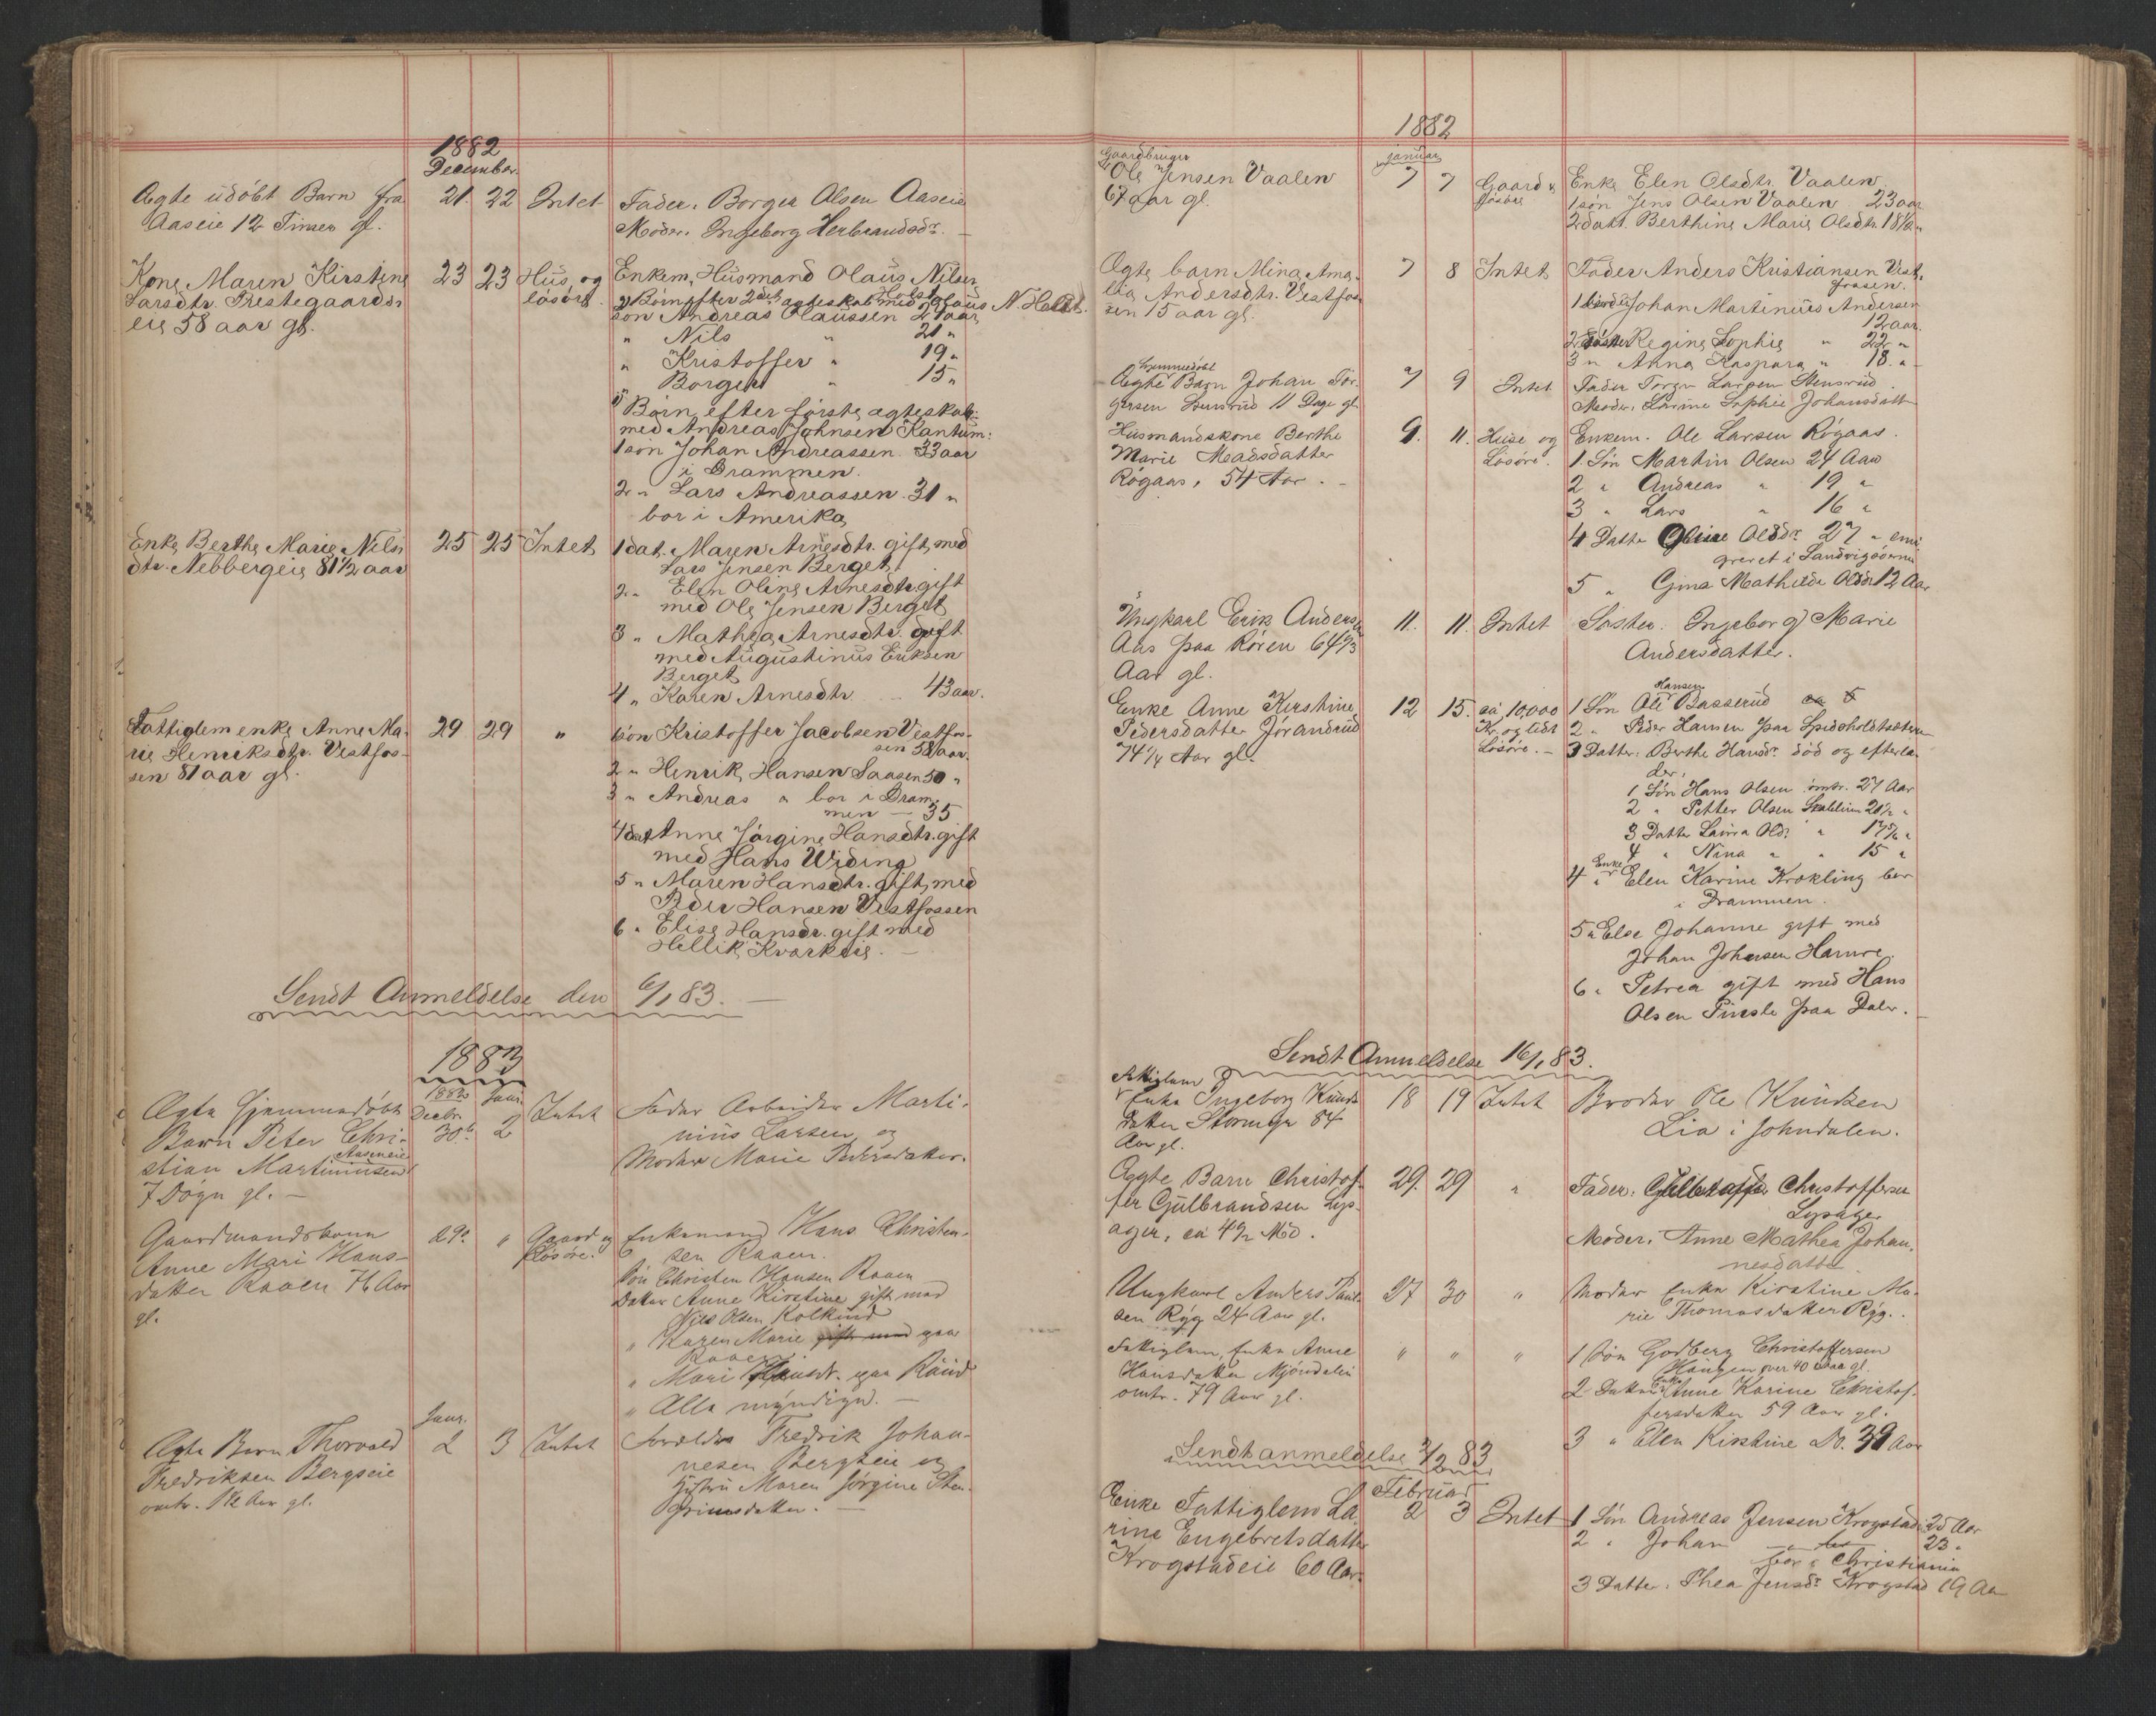 1882
December.
Ægte udöbt Barn fra 21. 22 Intet Fader. Borger Olsen Aaseie
Aaseie 12 Timer gl. Moder. Ingeborg Herbrandsdr. —
Kone Maren Kirstine 23 23 Hus og Enkem. Husmand Olaus Nilsen
Larsdtr. Prestegaards lösöre. 2) Börn efter 2det ægteskab med Olaus N. Holst.
eie 58 aar gl. sön Andreas Olaussen 24 aar
" Nils " 21 "
" Kristoffer " 19 "
" Borger " 15 "
1) Börn efter förste ægteskab:
med Andreas Johnsen Kantum:
1 sön Johan Andreassen. 33 aar
i Drammen.
2 " Lars Andreassen. 31 "
bor i Amerika
Enke Berthe Marie Nils 25 25 Intet 1 dat. Maren Arnesdtr. gift med
dtr. Nebbergeie 81½ aar Lars Jensen Berget
2. " Elen Oline Arnesdtr. gift
med Ole Jensen Berget
3 " Mathea Arnesdtr. gift
med Augustinus Eriksen
Berget
4 " Karen Arnesdtr 43 aar.
Fattiglem enke Anne Ma- 29 29 " 1 sön Kristoffer Jacobsen Vestfos-
rie Henriksdtr. Vestfos- sen 58 aar.
sen 81 aar gl. 2 " Henrik Hansen Saasen 50 "
3 " Andreas " bor i Dram-
men — 35
4 dat Anne Jörgine Hansdtr. gift
med Hans Widing
5 " Maren Hansdtr. gift med
Peder Hansen Vestfossen
6 " Elise Hansdr. gift med
Hellik Kvarkeie. —
Sendt Anmeldelse den 6/1 83. —
1883
1882 Janr.
Ægte hjemmedöbt Decbr. Intet Fader Arbeider Marti-
Barn Peter Chri- 30te 2 nius Larsen og
Aaseneie
stian Martiniusen Moder Marie Pedersdatter.
7 Dögn gl. —
Gaardmandskone 29de " Gaard og Enkemand Hans Christen-
Anne Mari Hans- Lösöre. sen Raaen.
datter Raaen 76 Aar Sön Christen Hansen Raaen
gl. Datter Anne Kirstine gift med
Nils Olsen Kolkind
" Karen Marie gift med paa
Raaen
" Mari Hansdr. paa Rüüd
" Alle myndige. —
Janr.
Ægte Barn Thorvald 2 3 Intet Forældre Fredrik Johan-
Fredriksen Bergseie nesen Bergseie og
omtr. 1½ Aar gl. Hustru Maren Jörgine Sten-
grimsdatter. —
1882
Gaardbruger januar
Ole Jensen Vaalen 7 7 Gaard & Enke Elen Olsdtr. Vaalen
67 aar gl. lösöre 1 sön Jens Olsen Vaalen 23 aar
2 datt. Berthine Marie Olsdtr. 18½ "
Ægte barn Mina Ama- 7 8 Intet Fader Anders Kristiansen Vest-
lia Andersdtr. Vestfos- fossen.
sen 15 aar gl. 1 broder Johan Martinius Andersen
12 aar.
2 Söster Regine Sophie " 22 "
3 " Anna Kaspara " 18 "
hjemmedöbt
Ægte Barn Johan Tor- 7 9 Intet Fader Torger Larsen Stensrud.
gersen Stensrud 11 Dage gl. Moder. Lorine Sophie Johansdatt
Husmandskone Berthe 9. 11. Huse og Enkem. Ole Larsen Rögaas.
Marie Madsdatter Lösöre. 1 Sön Martin Olsen 24 Aar
Rögaas, 54 Aar. — 2 " Andreas " 19 "
3 " Lars " 16 "
4 Datter Oline Olsdr. 27 " emi-
greret i Sandvigöerne
5 " Gina Mathilde Olsdr 12 Aar
Ungkarl Erik Anders 11. 11. Intet Söster. Ingeborg Marie
Aas paa Rören 64⅔ Andersdatter.
Aar gl.
Hansen
Enke Anne Kirstine 12 15. ca 10,000 1 Sön Ole Basserud
Pedersdatter Jörandrud Kr. og lidt 2 " Peder Hansen paa
74¼ Aar gl. Lösöre. — 3 Datter. Berthe Hansdr. död og efterla-
der.
1 Sön Hans Olsen omtr. 27 Aar
2 " Petter Olsen 21½ "
3 Datter Laura Olsdr. " 17 "
4 " Nina " " 15 "
Enke
4 " Elen Karine Krokling bor
i Drammen.
5 " Else Johanne gift med
Johan Johnsen Hamre.
6 " Petrea gift med Hans
Olsen paa Daler.
Sendt Anmeldelse 16/1 83.
Fattiglem
Enke Ingeborg Knuds 18 19 Intet Broder Ole Knudsen
datter Stormyr 84 Lia i Johndalen.
Aar gl.
Ægte Barn Christof- 29. 29 " Fader: Gulbrand Christoffersen
fer Gulbrandsen Lys- Lysager
ager, ca 4½ Md. Moder. Anne Mathea Johan-
nesdatter
Ungkarl Anders Paul- 27 30 " Moder Enke Kirstine Ma-
sen Ryg 24 Aar gl. rie Thomasdatter Ryg.
Fattiglem, Enke Anne " " " 1 Sön Godberg Christoffersen
Hansdatter Mjöndalen Haugen over 40 Aar gl.
omtr. 79 Aar gl. 2 Datter Enke Anne Karine Christof-
fersdatter 59 Aar gl.
3 " Elen Kirstine Do. 39 Aar
Sendt anmeldelse 3/2 83
Februar
Enke Fattiglem La- 2 3 Intet 1 Sön Andreas Jensen Krogstad 25 Aar
rine Engebretsdatter 2 " Johan 23 "
Krogstadeie 60 Aar. bor i Christiania
3 Datter. Thea Jensdr. Krogstad 19 Aar